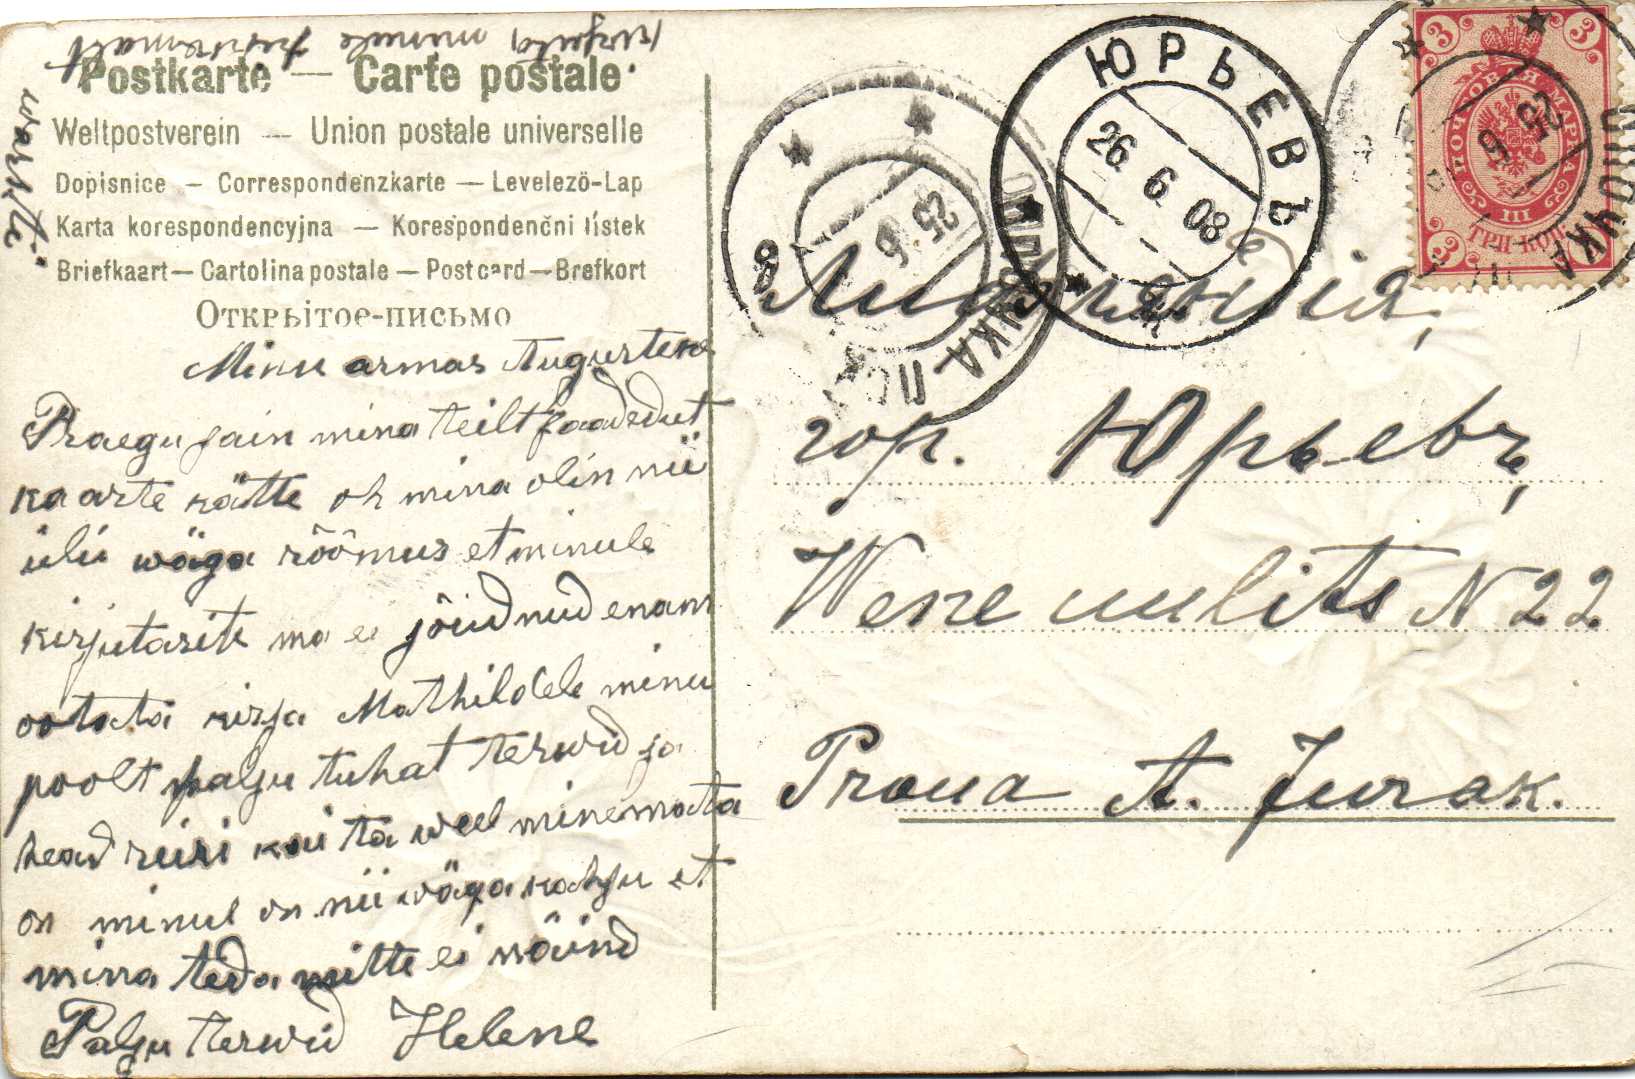 kirjuta minule
warsti
Postkarte — Carte postale
Weltpostverein — Union postale universelle
Dopisnice — Correspondenzkarte — Levelező-Lap
Karta korespondencyjna — Korespondenční lístek
Briefkaart — Cartolina postale — Post card — Brefkort
Открытое-письмо
Minu armas Auguste
Praegu sain mina teilt saadedut
kaarte kätte oh mina olin nii
ülii wäga rõõmus et minule
kirjutasite ma ei jõudnud enam
ootata kirja Mathildele minu
poolt palju tuhat terwid ja
head reisi kui ta weel minemata
on minul on nii wäga kahju et
mina teda mitte ei näind
Palju terwid Helene
ЮРЬЕВЪ
26 6 08
25 6
ОПОЧКА
08
25 6
ОПОЧКА ПСК
3 3
ПОЧТОВАЯ МАРКА
III
3 ТРИ КОП.
Лифляндія,
гор. Юрьевъ,
Wene uulits N 22
Proua A. Jurak.